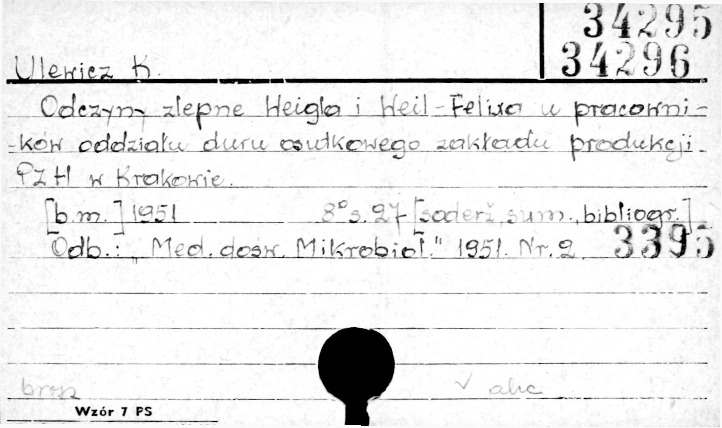 34295
34296
Ulewicz K.
Odczyny zlepne Weigla i Weil-Felixa u pracowni-
-ków oddziału duru osutkowego zakładu produkcji
PZH w Krakowie.
[b.m.] 1951 8° s. 27 [soderž., sum., bibliogr.]
Odb.: „Med. dośw. Mikrobiol." 1951. Nr. 2. 3395
brosz
Wzór 7 PS